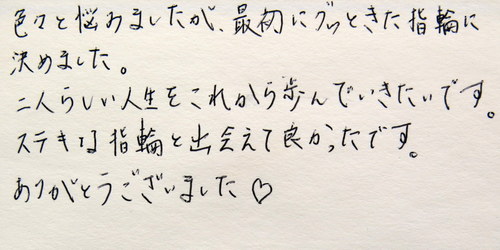 色々と悩みましたが、最初にグッときた指輪に
決めました。
二人らしい人生をこれから歩んでいきたいです。
ステキな指輪と出会えて良かったです。
ありがとうございました♡